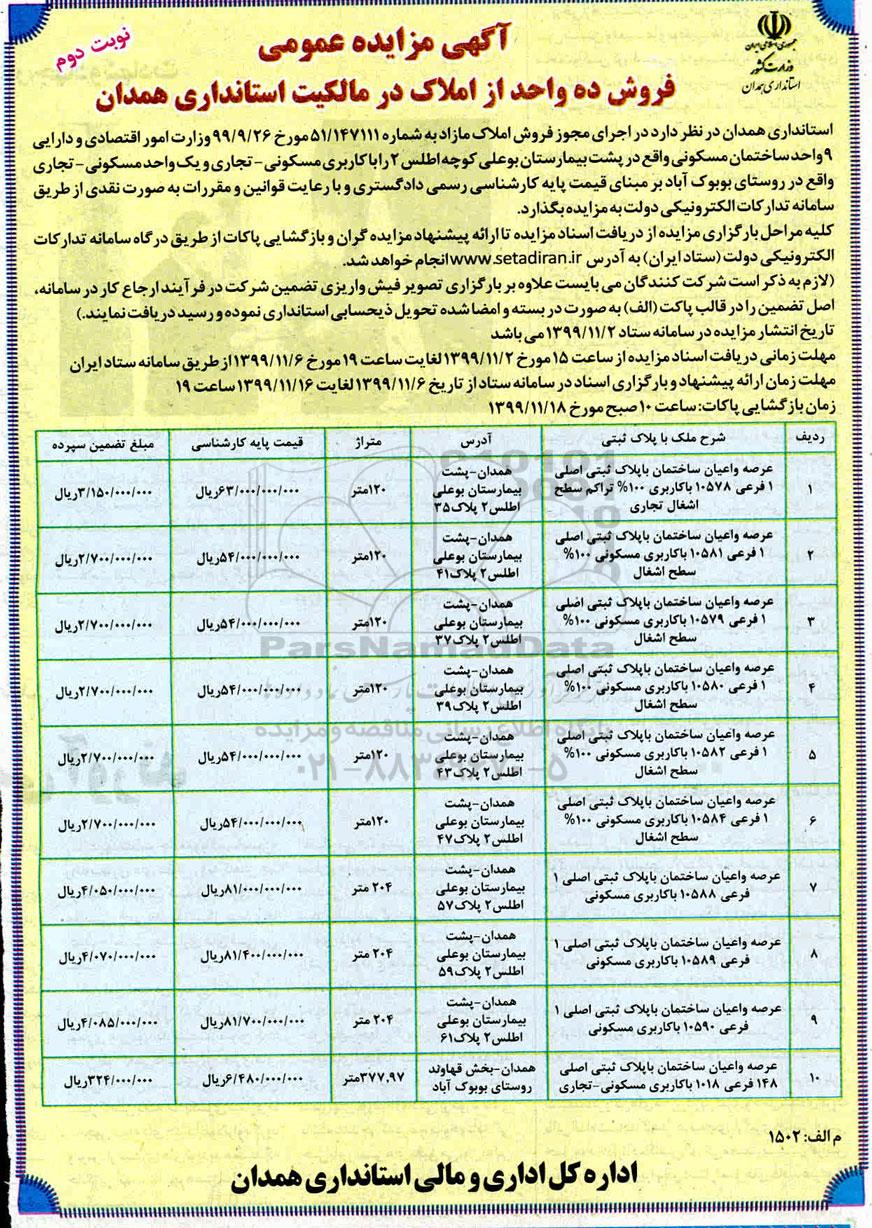 جمهوری اسلامی ایران
وزارت کشور
استانداری همدان
نوبت دوم
آگهی مزایده عمومی
فروش ده واحد از املاک در مالکیت استانداری همدان
استانداری همدان در نظر دارد در اجرای مجوز فروش املاک مازاد به شماره ۵۱/۱۴۷۱۱۱ مورخ ۹۹/۹/۲۶ وزارت امور اقتصادی و دارایی
۹ واحد ساختمان مسکونی واقع در پشت بیمارستان بوعلی کوچه اطلس ۲ را با کاربری مسکونی - تجاری و یک واحد مسکونی - تجاری
واقع در روستای بوبوک آباد بر مبنای قیمت پایه کارشناسی رسمی دادگستری و با رعایت قوانین و مقررات به صورت نقدی از طریق
سامانه تدارکات الکترونیکی دولت به مزایده بگذارد.
کلیه مراحل بارگزاری مزایده از دریافت اسناد مزایده تا ارائه پیشنهاد مزایده گران و بازگشایی پاکات از طریق درگاه سامانه تدارکات
الکترونیکی دولت (ستاد ایران) به آدرس www.setadiran.ir انجام خواهد شد.
(لازم به ذکر است شرکت کنندگان می بایست علاوه بر بارگزاری تصویر فیش واریزی تضمین شرکت در فرآیند ارجاع کار در سامانه،
اصل تضمین را در قالب پاکت (الف) به صورت در بسته و امضا شده تحویل ذیحسابی استانداری نموده و رسید دریافت نمایند.)
تاریخ انتشار مزایده در سامانه ستاد ۱۳۹۹/۱۱/۲ می باشد
مهلت زمانی دریافت اسناد مزایده از ساعت ۱۵ مورخ ۱۳۹۹/۱۱/۲ لغایت ساعت ۱۹ مورخ ۱۳۹۹/۱۱/۶ از طریق سامانه ستاد ایران
مهلت زمان ارائه پیشنهاد و بارگزاری اسناد در سامانه ستاد از تاریخ ۱۳۹۹/۱۱/۶ لغایت ۱۳۹۹/۱۱/۱۶ ساعت ۱۹
زمان بازگشایی پاکات: ساعت ۱۰ صبح مورخ ۱۳۹۹/۱۱/۱۸
ردیف شرح ملک با پلاک ثبتی آدرس متراژ قیمت پایه کارشناسی مبلغ تضمین سپرده
۱ عرصه واعیان ساختمان باپلاک ثبتی اصلی ۱ فرعی ۱۰۵۷۸ باکاربری ۱۰۰% تراکم سطح اشغال تجاری همدان-پشت بیمارستان بوعلی اطلس۲ پلاک۳۵ ۱۲۰متر ۶۳/۰۰۰/۰۰۰/۰۰۰ریال ۳/۱۵۰/۰۰۰/۰۰۰ریال
۲ عرصه واعیان ساختمان باپلاک ثبتی اصلی ۱ فرعی ۱۰۵۸۱ باکاربری مسکونی ۱۰۰% سطح اشغال همدان-پشت بیمارستان بوعلی اطلس۲ پلاک۴۱ ۱۲۰متر ۵۴/۰۰۰/۰۰۰/۰۰۰ریال ۲/۷۰۰/۰۰۰/۰۰۰ریال
۳ عرصه واعیان ساختمان باپلاک ثبتی اصلی ۱ فرعی ۱۰۵۷۹ باکاربری مسکونی ۱۰۰% سطح اشغال همدان-پشت بیمارستان بوعلی اطلس۲ پلاک۳۷ ۱۲۰متر ۵۴/۰۰۰/۰۰۰/۰۰۰ریال ۲/۷۰۰/۰۰۰/۰۰۰ریال
۴ عرصه واعیان ساختمان باپلاک ثبتی اصلی ۱ فرعی ۱۰۵۸۰ باکاربری مسکونی ۱۰۰% سطح اشغال همدان-پشت بیمارستان بوعلی اطلس۲ پلاک۳۹ ۱۲۰متر ۵۴/۰۰۰/۰۰۰/۰۰۰ریال ۲/۷۰۰/۰۰۰/۰۰۰ریال
۵ عرصه واعیان ساختمان باپلاک ثبتی اصلی ۱ فرعی ۱۰۵۸۲ باکاربری مسکونی ۱۰۰% سطح اشغال همدان-پشت بیمارستان بوعلی اطلس۲ پلاک۴۳ ۱۲۰متر ۵۴/۰۰۰/۰۰۰/۰۰۰ریال ۲/۷۰۰/۰۰۰/۰۰۰ریال
۶ عرصه واعیان ساختمان باپلاک ثبتی اصلی ۱ فرعی ۱۰۵۸۴ باکاربری مسکونی ۱۰۰% سطح اشغال همدان-پشت بیمارستان بوعلی اطلس۲ پلاک۴۷ ۱۲۰متر ۵۴/۰۰۰/۰۰۰/۰۰۰ریال ۲/۷۰۰/۰۰۰/۰۰۰ریال
۷ عرصه واعیان ساختمان باپلاک ثبتی اصلی ۱ فرعی ۱۰۵۸۸ باکاربری مسکونی همدان-پشت بیمارستان بوعلی اطلس۲ پلاک۵۷ ۲۰۴ متر ۸۱/۰۰۰/۰۰۰/۰۰۰ریال ۴/۰۵۰/۰۰۰/۰۰۰ریال
۸ عرصه واعیان ساختمان باپلاک ثبتی اصلی ۱ فرعی ۱۰۵۸۹ باکاربری مسکونی همدان-پشت بیمارستان بوعلی اطلس۲ پلاک۵۹ ۲۰۴ متر ۸۱/۴۰۰/۰۰۰/۰۰۰ریال ۴/۰۷۰/۰۰۰/۰۰۰ریال
۹ عرصه واعیان ساختمان باپلاک ثبتی اصلی ۱ فرعی ۱۰۵۹۰ باکاربری مسکونی همدان-پشت بیمارستان بوعلی اطلس۲ پلاک۶۱ ۲۰۴ متر ۸۱/۷۰۰/۰۰۰/۰۰۰ریال ۴/۰۸۵/۰۰۰/۰۰۰ریال
۱۰ عرصه واعیان ساختمان باپلاک ثبتی اصلی ۱۴۸ فرعی ۱۰۱۸ باکاربری مسکونی-تجاری همدان-بخش قهاوند روستای بوبوک آباد ۳۷۷,۹۷متر ۶/۴۸۰/۰۰۰/۰۰۰ریال ۳۲۴/۰۰۰/۰۰۰ریال
ParsNamadData
م الف: ۱۵۰۲
اداره کل اداری و مالی استانداری همدان